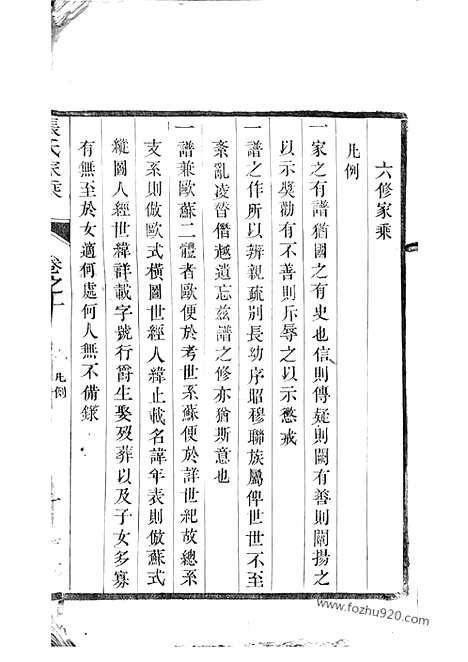 六修家乘
凡例
一家之有譜猶國之有史也信則傳疑則闕有善則闡揚之
以示奬勸有不善則斥辱之以示懲戒
一譜之作所以辨親疏別長幼序昭穆聯族屬俾世世不至
紊亂凌替僭越遺忘兹譜之修亦猶斯意也
一譜兼歐蘇二體者歐便於考世系蘇便於詳世紀故總系
支系則倣歐式橫圖世經人緯止載名諱年表則倣蘇式
縱圖人經世緯詳載字號行爵生娶歿葬以及子女多寡
有無至於女適何處何人無不備錄
張氏家乘
卷之十
凡例
www.fozhu920.com